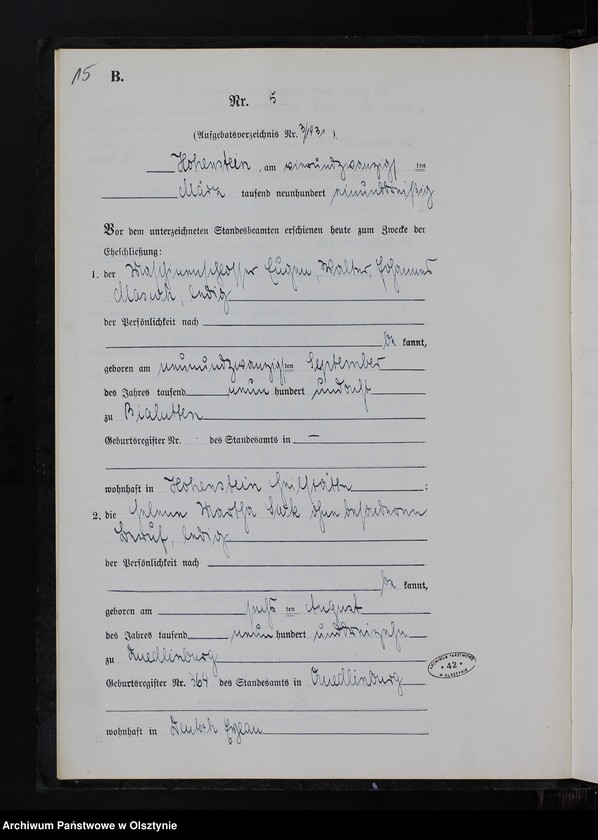 15 B.
Nr. 5
(Aufgebotsverzeichnis Nr. 3/1931).
Hohenstein, am einundzwanzigsten
März tausend neunhundert einunddreißig
Vor dem unterzeichneten Standesbeamten erschienen heute zum Zwecke der
Eheschließung:
1. der Maschinenschlosser Eugen, Walter, Johannes
ledig
der Persönlichkeit nach
be kannt,
geboren am neunundzwanzigsten September
des Jahres tausend neun hundert undacht
zu Bialutten
Geburtsregister Nr. - des Standesamts in —
wohnhaft in Hohenstein Heilstätten;
2. die Helene Martha ohne besonderen
Beruf, ledig
der Persönlichkeit nach
be kannt,
geboren am sechsten August
des Jahres tausend neun hundert unddreizehn
zu Quedlinburg
Geburtsregister Nr. 364 des Standesamts in Quedlinburg
wohnhaft in Deutsch Eylau
ARCHIWUM PAŃSTWOWE
* 42 *
W OLSZTYNIE
Archiwum Państwowe w Olsztynie